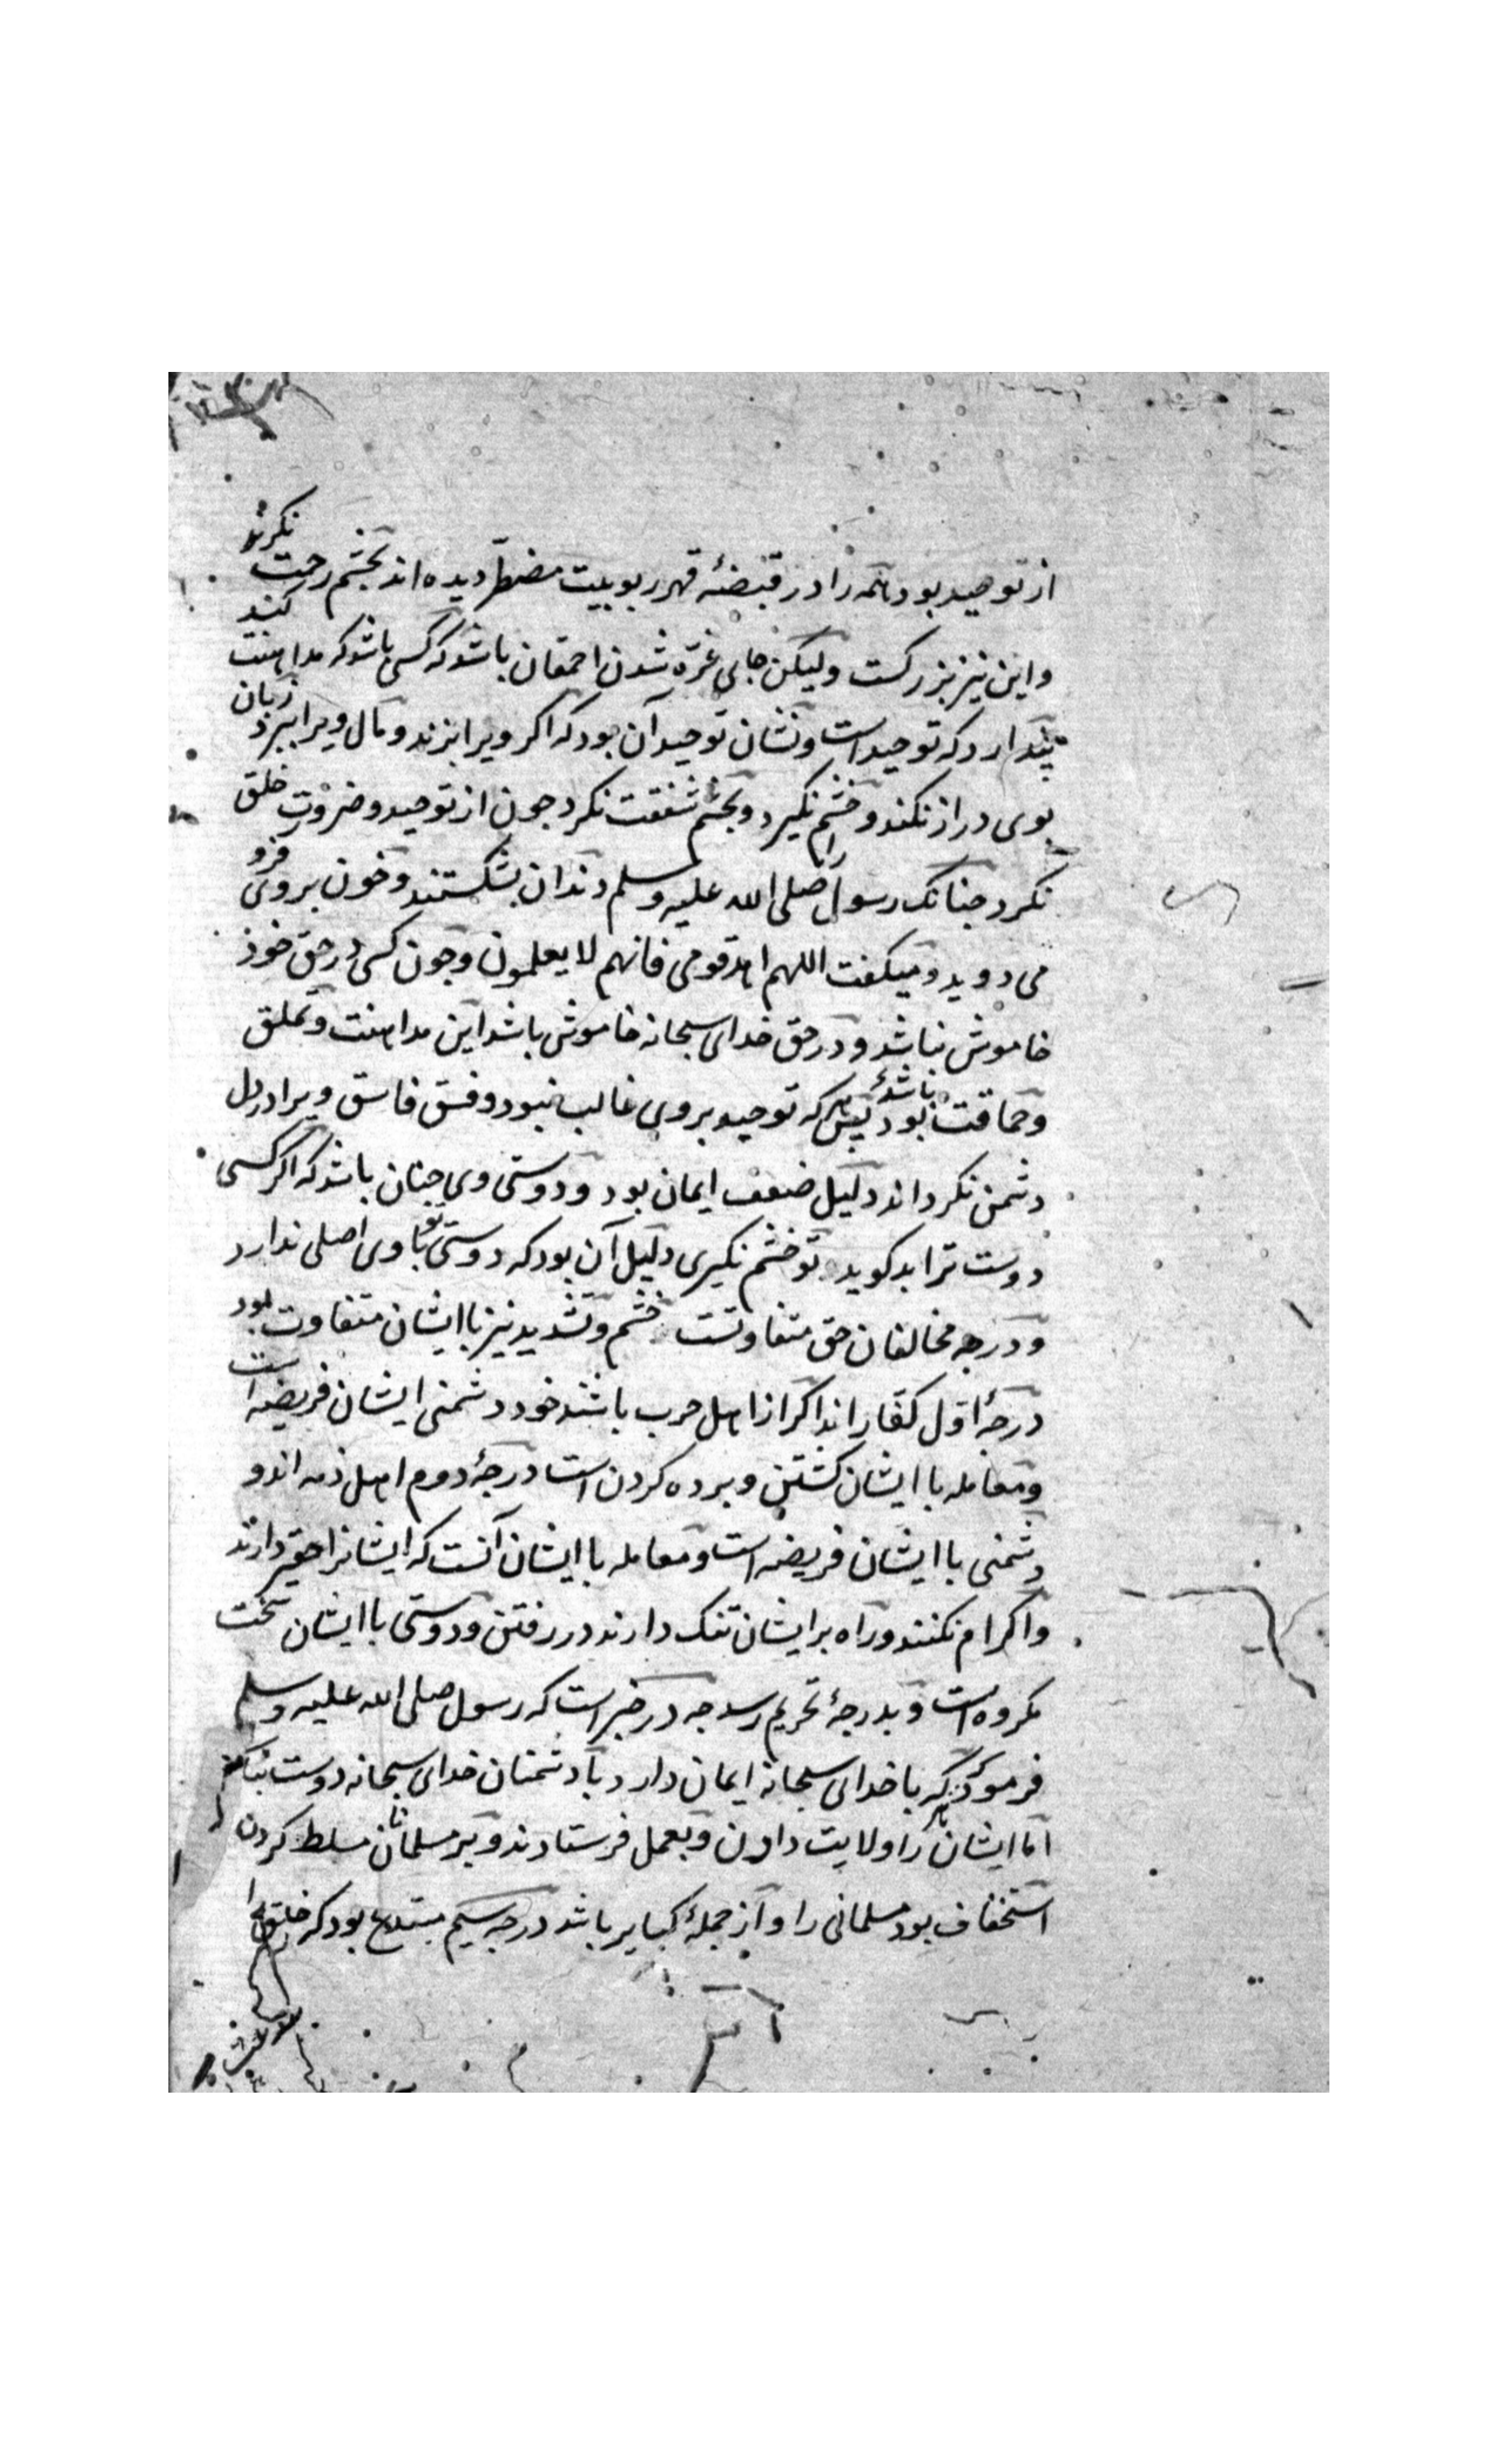 از توحید بود همه را در قبضهٔ قهر ربوبیت مضطرّ دیده اند بچشم رحمت نکرند
و این نیز بزرکست ولیکن جای غرّه شدن احمقان باشد که کسی باشد که مداهنت کند
پندارد که توحید است و نشان توحید آن بود که اکر ویرا بزند و مال ویرا ببرد زبان
بوی دراز نکند و خشم نکیرد و بچشم شفقت نکرد جون از توحید و ضروت خلق
نکرد جنانک رسول را صلی الله علیه وسلم دندان بشکستند و خون بروی فرو
می دوید و میکفت اللهم اهد قومی فانهم لا یعلمون و جون کسی در حق خوذ
خاموش نباشد و در حق خدای سبحانه خاموش باشد این مداهنت و تملق
و حماقت بود باشد بس هر که توحید بروی غالب نبود و فسق فاسق ویرا در دل
دشمن نکرداند دلیل ضعف ایمان بود و دوستی وی جنان باشد که اکر کسی
دوست ترا بد کوید تو خشم نکیری دلیل آن بود که دوستی تو با وی اصلی ندارد
و درجه مخالفان حق متفاوتست خشم و تشدید نیز با ایشان متفاوت بود
درجهٔ اوّل کفّار اند اکر از اهل حرب باشند خود دشمنی ایشان فریضه است
و معامله با ایشان کشتن و برده کردن است درجهٔ دوم اهل ذمه اند و
دشمنی با ایشان فریضه است و معامله با ایشان آنست که ایشانرا حقیر دارند
و اکرام نکنند و راه بر ایشان تنک دارند در رفتن و دوستی با ایشان سخت
مکروه است و بدرجهٔ تحریم رسد جه در خبر است که رسول صلی الله علیه وسلم
فرمود که هر که با خدای سبحانه ایمان دارد با دشمنان خدای سبحانه دوست نباشد
اما ایشان را ولایت دادن و بعمل فرستادند و بر مسلمانان مسلط کردن
استخفاف بود مسلمانی را و از جملهٔ کبایر باشد درجه سیم مبتدع بود که خلق را
بدعت